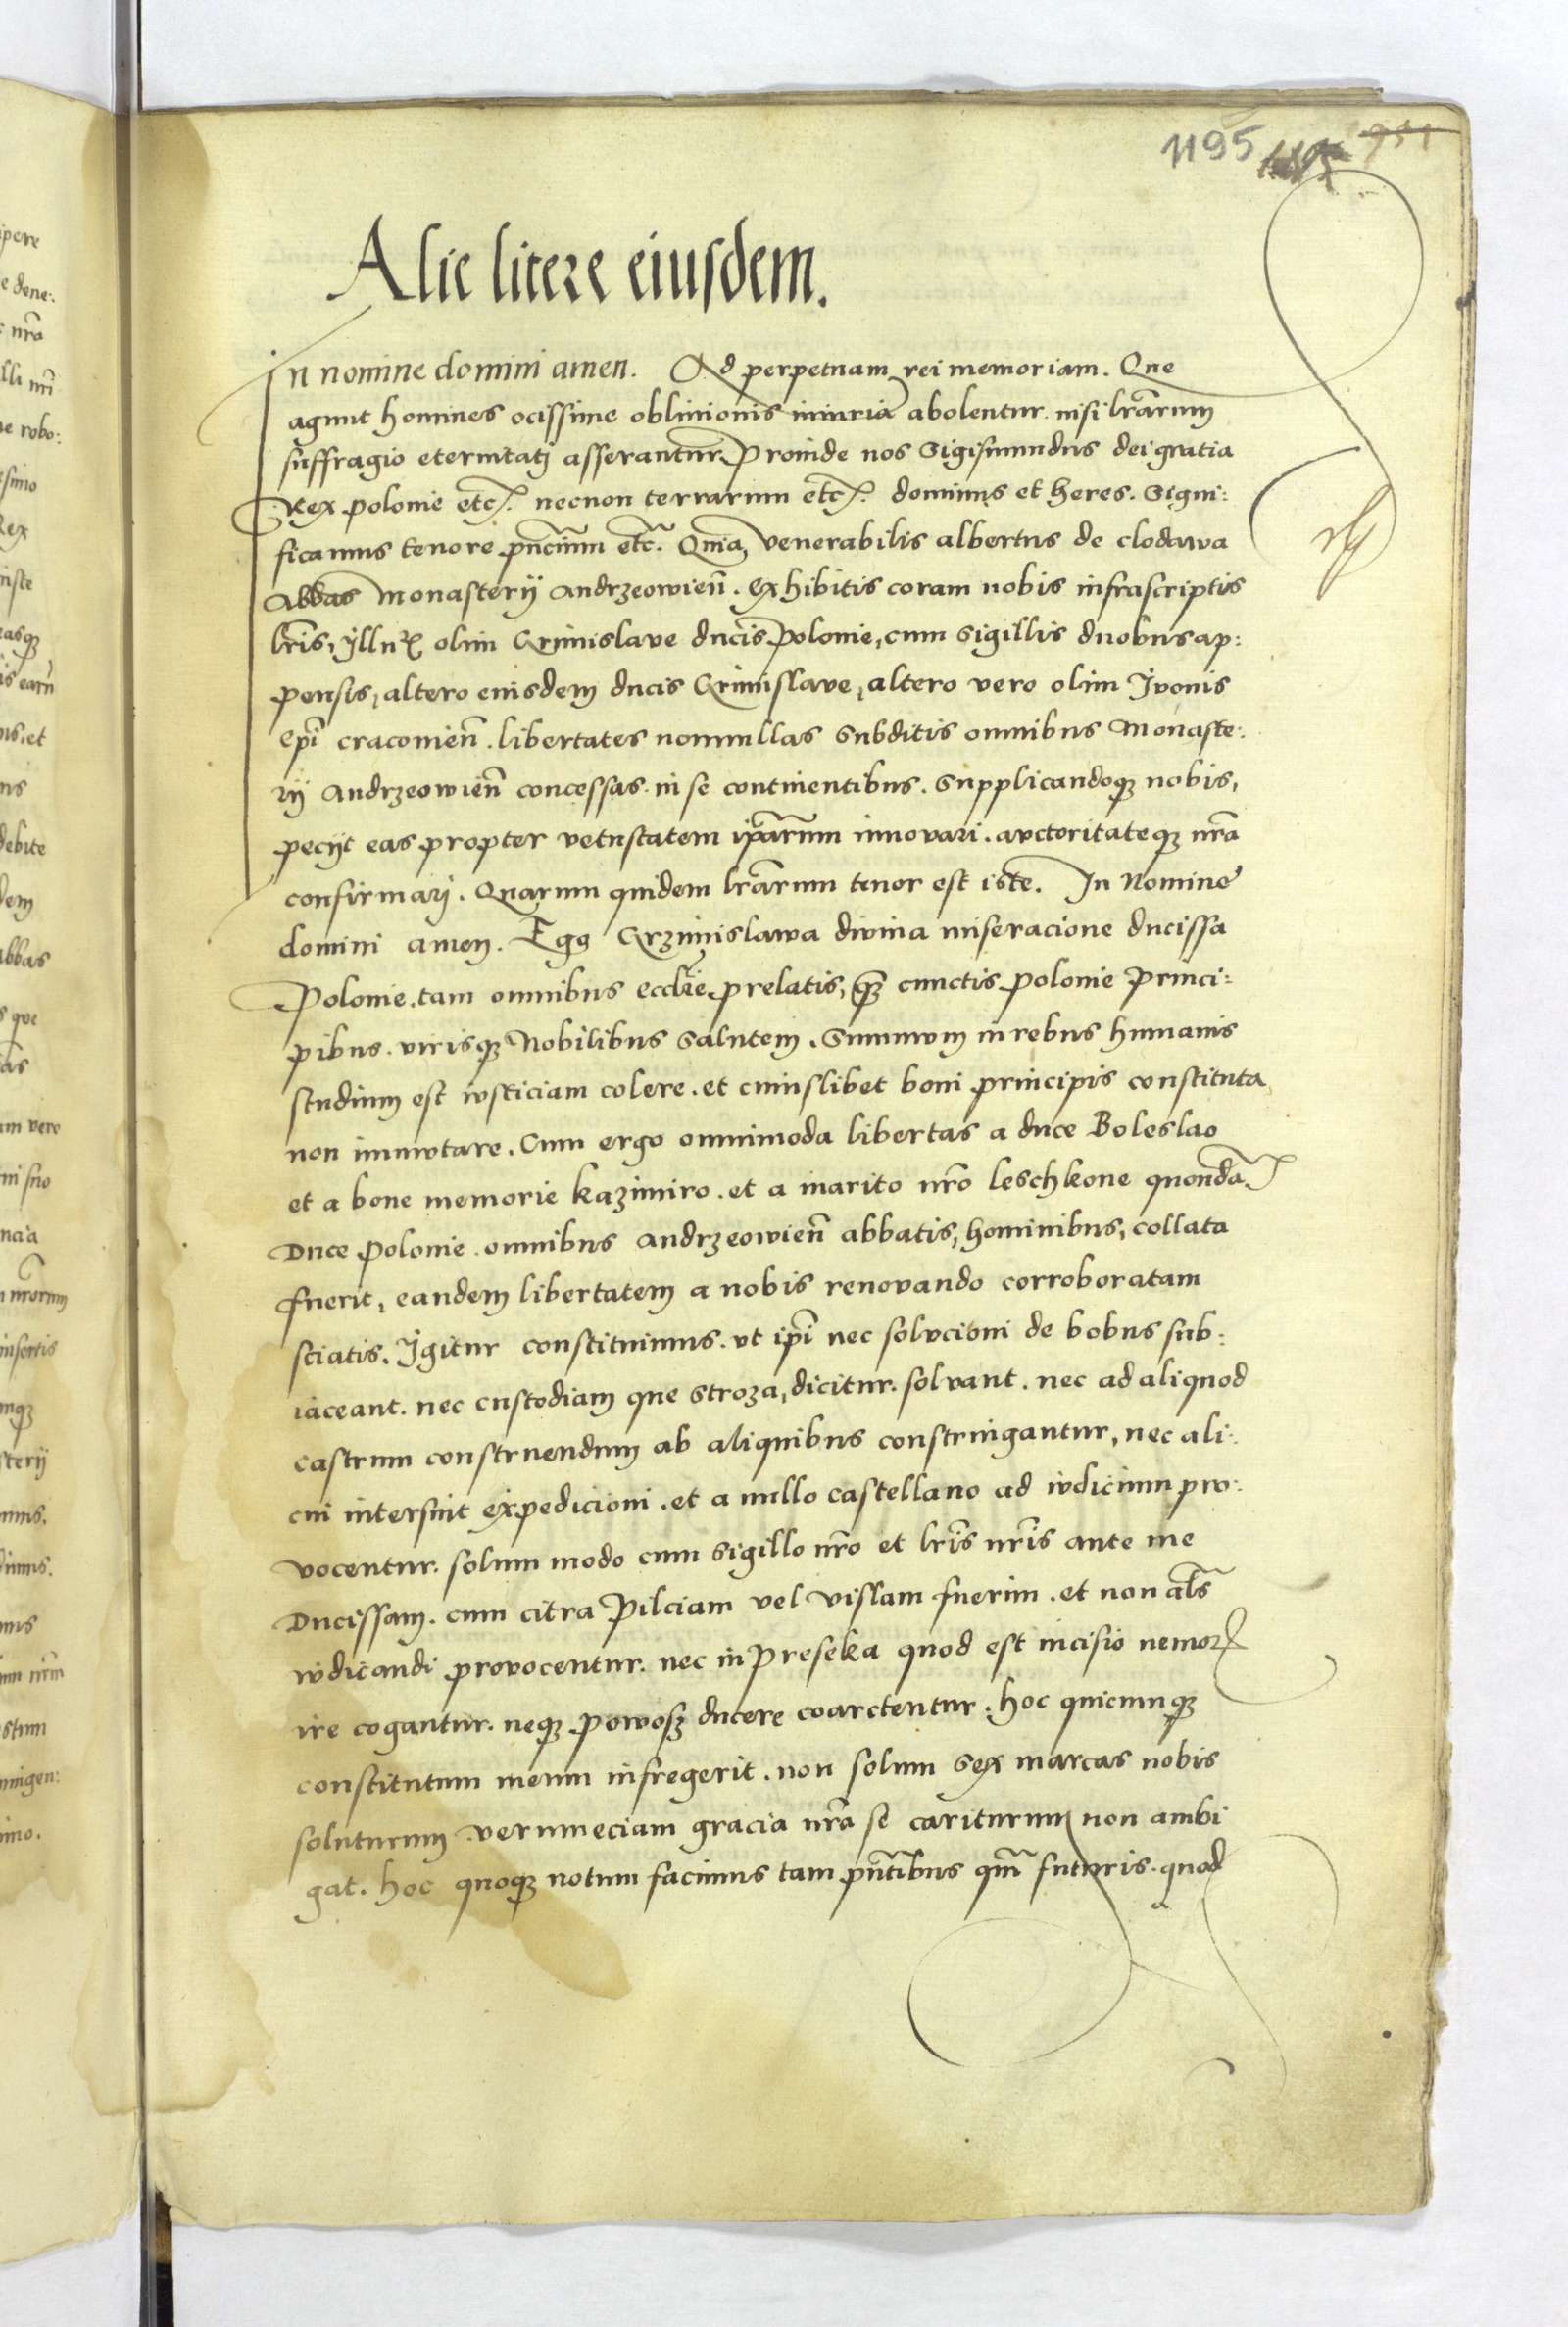 1195 951
Alie litere eiusdem.
In nomine domini amen. Ad perpetuam rei memoriam. Que
agunt homines ocissime obliuionis iniuria abolentur. nisi lrarum
suffragio eternitati asserantur. Proinde nos Sigismundus dei gratia
Rex polonie etc. necnon terrarum etc. dominus et heres. Signi:
ficamus tenore pñcium etc. Quia venerabilis albertus de clodawa
Abbas Monasterij Andrzeowieñ. exhibitis coram nobis infrascriptis
lris, yllris olim Grimislaue ducis Polonie, cum sigillis duobus ap:
pensis, altero eiusdem ducis Grimislaue, altero vero olim Iuonis
epi cracouieñ. libertates nonnullas subditis omnibus Monaste:
rij Andrzeowieñ concessas. in se continentibus. supplicandoqȝ nobis,
pecijt eas propter vetustatem ipãrum innouari. auctoritateqȝ nrã
confirmari. Quarum quidem lrãrum tenor est iste. In Nomine
domini amen. Ego Grzimislawa diuina miseracione ducissa
Polonie. tam omnibus ecclie prelatis, qȝ cunctis polonie Princi:
pibus. virisqȝ Nobilibus Salutem. Summum in rebus humanis
studium est iusticiam colere. et cuiuslibet boni principis constituta
non immutare. Cum ergo omnimoda libertas a duce Boleslao
et a bone memorie kazimiro. et a marito nrõ leschkone quondã
Duce polonie. omnibus Andrzeowieñ abbatis, hominibus, collata
fuerit, eandem libertatem a nobis renouando corroboratam
sciatis. Igitur constituimus. vt ipi nec solucioni de bobus sub:
iaceant. nec custodiam que stroza, dicitur. soluant. nec ad aliquod
castrum construendum ab aliquibus constringantur, nec ali:
cui intersint expedicioni. et a nullo castellano ad iudicium pro:
vocentur. solum modo cum sigillo nrõ et lris nris ante me
Ducissam. cum citra Pilciam vel vislam fuerim. et non als
iudicandi prouocentur. nec in Preseka quod est incisio nemor
ire cogantur. neqȝ powosz ducere coarctentur. hoc quicunqȝ
constitutum meum infregerit. non solum sex marcas nobis
soluturum. verumeciam gracia nrã se cariturum non ambi
gat. hoc quoqȝ notum facimus tam pñtibus qm futuris. quod